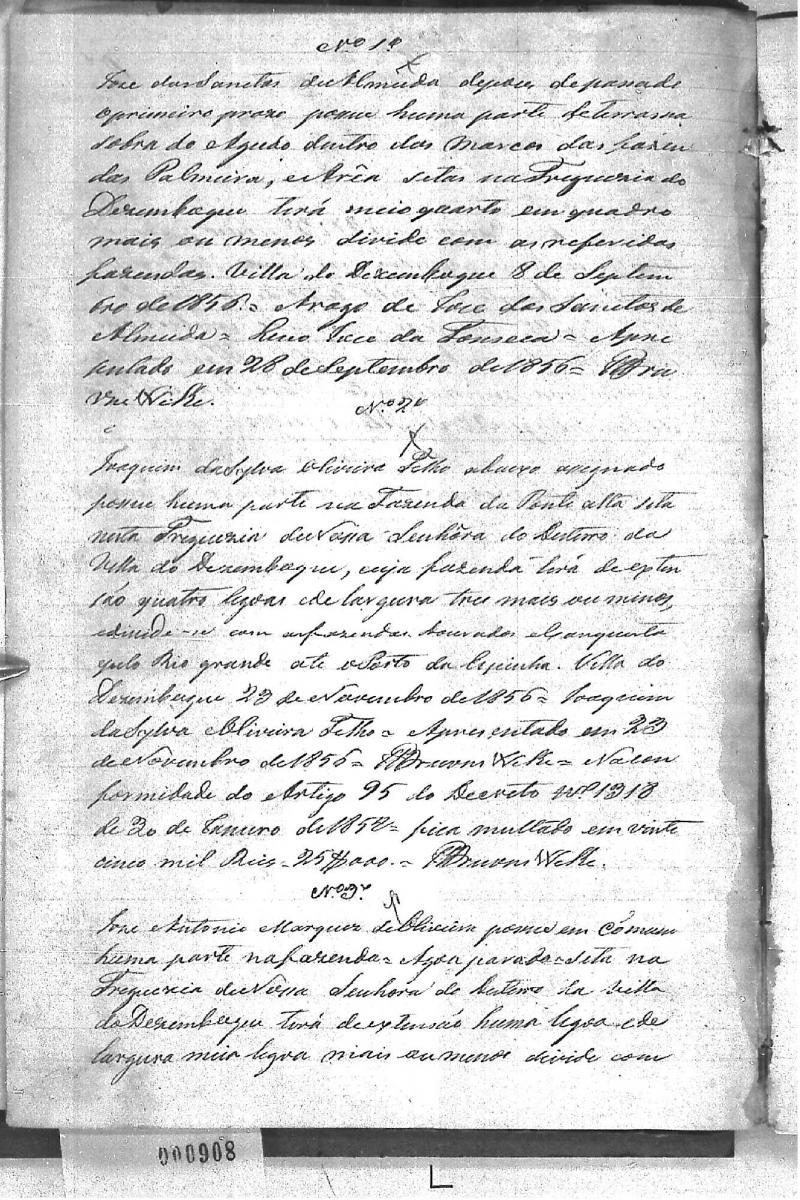 Nº 1º
Jose dos Sanctos de Almeida depois de passado
o primeiro prazo possue huma parte de terras na
sobra do Agudo dentro dos Marcos das fazen
das Palmeira, e Arêa setas na Freguezia do
Dezemboque terá meio quarto em quadro
mais ou menos divide com as referidas
fazendas. Villa do Dezemboque 8 de Septem
bro de 1856 = Arogo de Jose dos Sanctos de
Almeida = Jose da Fonseca = Apre
sentado em 28 de Septembro de 1856 =
Nº 2º
Joaquim da Sylva Oliveira Filho abaixo asegnado
possue huma parte na Fazenda da Ponte alta seta
nesta Freguezia de Nossa Senhôra do Desterro da
Villa do Dezemboque, cuja fazenda terá de exten
sao quatro legoas e de largura tres mais ou menos,
edivide-se com as fazendas dourados
pelo Rio grande até o Porto da Espinha. Villa do
Dezemboque 23 de Novembro de 1856 = Joaquim
da Sylva Oliveira Filho = Apresentado em 23
de Novembro de 1856 = = Na con
formidade do Artigo 95 do Decreto nº 1318
de 30 de Janeiro de 1854 = fica multado em vinte
cinco mil Reis = 25$000. =
Nº 3º
Jose Antonio Marquez de Oliveira possue em cômum
huma parte na fazenda = Agoa parada = seta na
Freguezia de Nossa Senhora do Desterro da Villa
do Dezemboque terá de extensão huma legoa e de
largura meia legoa mais ou menos divide com
000908